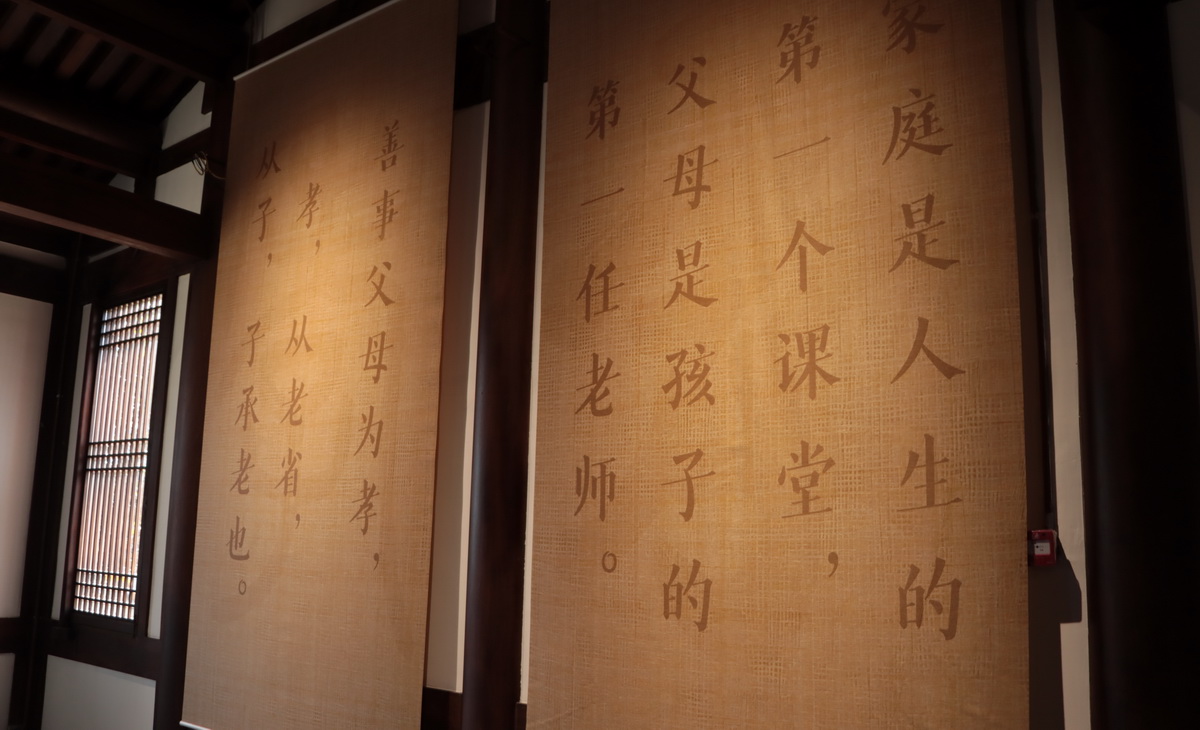 家庭是人生的
第一个课堂，
父母是孩子的
第一任老师。
善事父母为孝，
孝，从老省，
从子，子承老也。